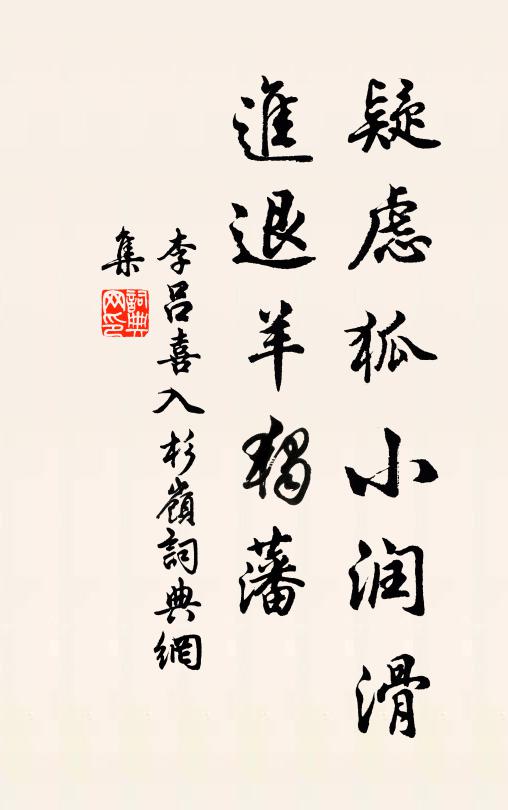 疑慮狐小润滑
進退羊觸藩
李呂喜入杉嶺詞典網
集
詞典
网印